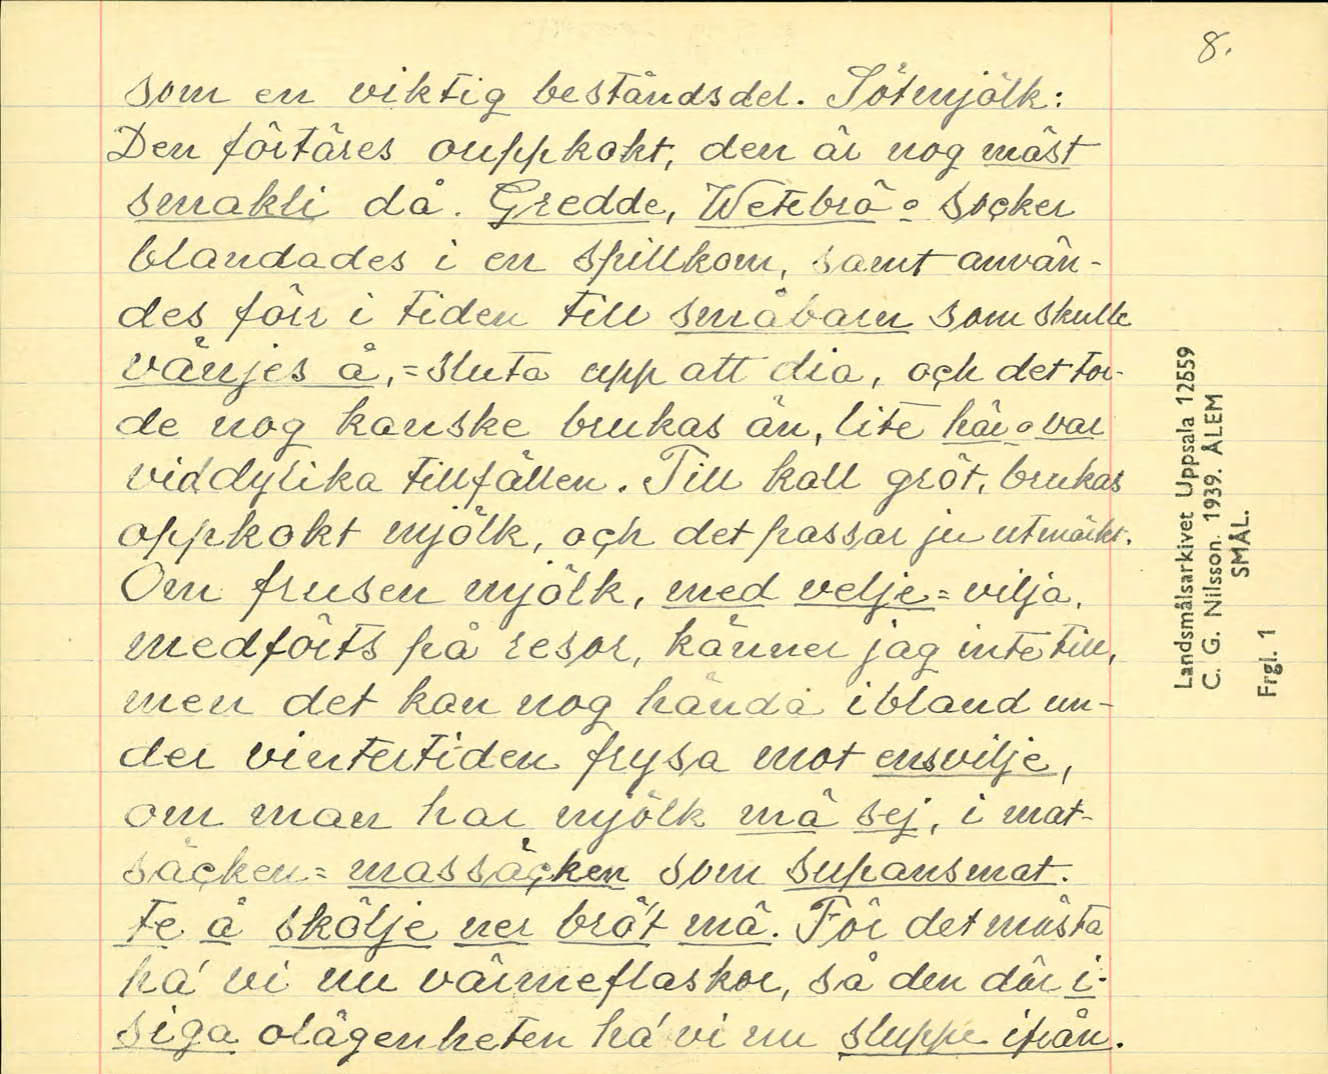 8.
som en viktig beståndsdel. Sötmjölk:
Den förtäres ouppkokt, den är nog mäst
smakli då. Gredde, Wetebrö o socker
blandades i en spillkom, samt använ-
des förr i tiden till småbarn som skulle
vänjes å, = sluta upp att dia, och det tor-
de nog kanske brukas än, lite här o var
vid dylika tillfällen. Till kall gröt, brukas
oppkokt mjölk, och det passar ju utmärkt.
Om frusen mjölk, med velje = vilja,
medförts på resor, känner jag inte till,
men det kan nog hända ibland un-
der vintertiden frysa mot ensvilje,
om man har mjölk mä sej, i mat-
säcken = massäcken som supansmat.
te å skölje ner brö't mä. För det mästa
ha' vi nu värmeflaskor, så den där i-
siga olägenheten ha' vi nu sluppe ifrån.
Landsmålsarkivet Uppsala 12559
C. G. Nilsson. 1939. ÅLEM
SMÅL.
Frgl. 1